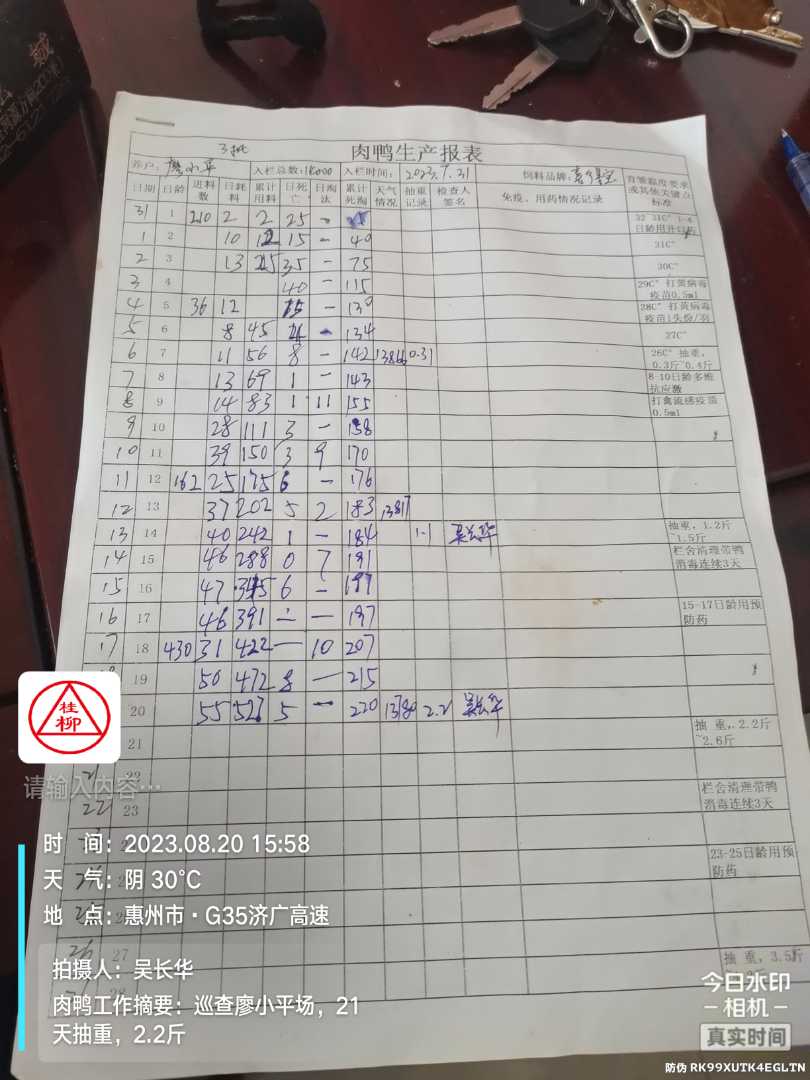 城
3批
肉鸭生产报表
养户: 廖小平 入栏总数:14000 入栏时间: 2023.7.31 饲料品牌:
育雏温度要求或其他关键点标准
日期 日龄 进料数 日耗料 累计用料 日死亡 日淘汰 累计死淘 天气情况 抽重记录 检查人签名 免疫、用药情况记录
31 1 210 2 2 25 - 32 31C° 1-4日龄用开口药
1 2 10 12 15 - 40 31C°
2 3 13 25 35 - 75 30C°
3 4 40 - 115 29C° 打黄病毒疫苗0.5ml
4 5 36 12 15 - 130 28C° 打黄病毒疫苗1头份/羽
5 6 8 45 - 134 27C°
6 7 11 56 8 - 142 13866 0.31 26C° 抽重,0.3斤~0.4斤
7 8 13 69 1 - 143 8-10日龄多维抗应激
8 9 14 83 1 11 155 打禽流感疫苗0.5ml
9 10 28 111 3 - 158
10 11 39 150 3 9 170
11 12 162 25 175 6 - 176
12 13 37 202 5 2 183 13817
13 14 40 242 1 - 184 1.1 吴长华 抽重,1.2斤~1.5斤
14 15 46 288 0 7 191 栏舍清理带鸭消毒连续3天
15 16 47 345 6 - 197
16 17 46 391 - - 197 15-17日龄用预防药
17 18 430 31 422 - 10 207
19 50 472 8 - 215
20 55 527 5 - 220 13780 2.2 吴长华
21 抽重,2.2斤~2.6斤
21 22
22 23 栏舍清理带鸭消毒连续3天
23-25日龄用预防药
26 27 抽重,3.5斤
28
桂柳
请输入内容…
时 间: 2023.08.20 15:58
天 气: 阴 30℃
地 点: 惠州市·G35济广高速
拍摄人: 吴长华
肉鸭工作摘要: 巡查廖小平场, 21
天抽重, 2.2斤
今日水印
-相机-
真实时间
防伪 RK99XUTK4EGLTN